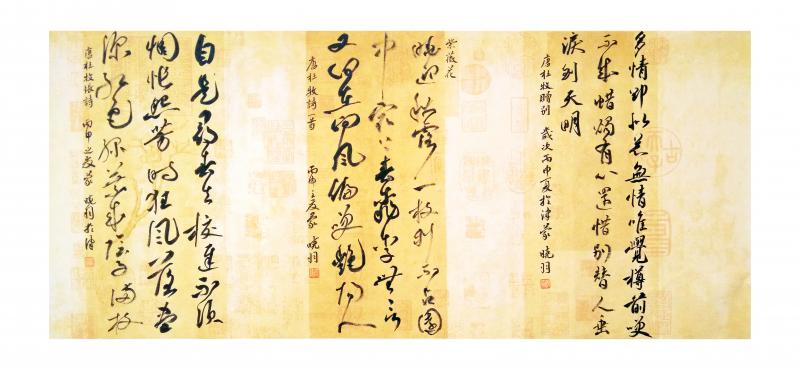 多情却似总無情唯覺樽前笑
不成蜡燭有心還惜別替人垂
淚到天明
唐杜牧贈別 歲次丙申夏於津蒙 曉羽
紫薇花
曉迎秋露一枝新不占園
中最上春桃李無言
又何在向風偏笑艷陽人
唐杜牧詩一首 丙申之夏蒙 曉羽
自是尋春去校遲不須
惆悵怨芳時狂風落盡
深紅色綠葉成陰子滿枝
唐杜牧悵詩 丙申之夏蒙 曉羽於津